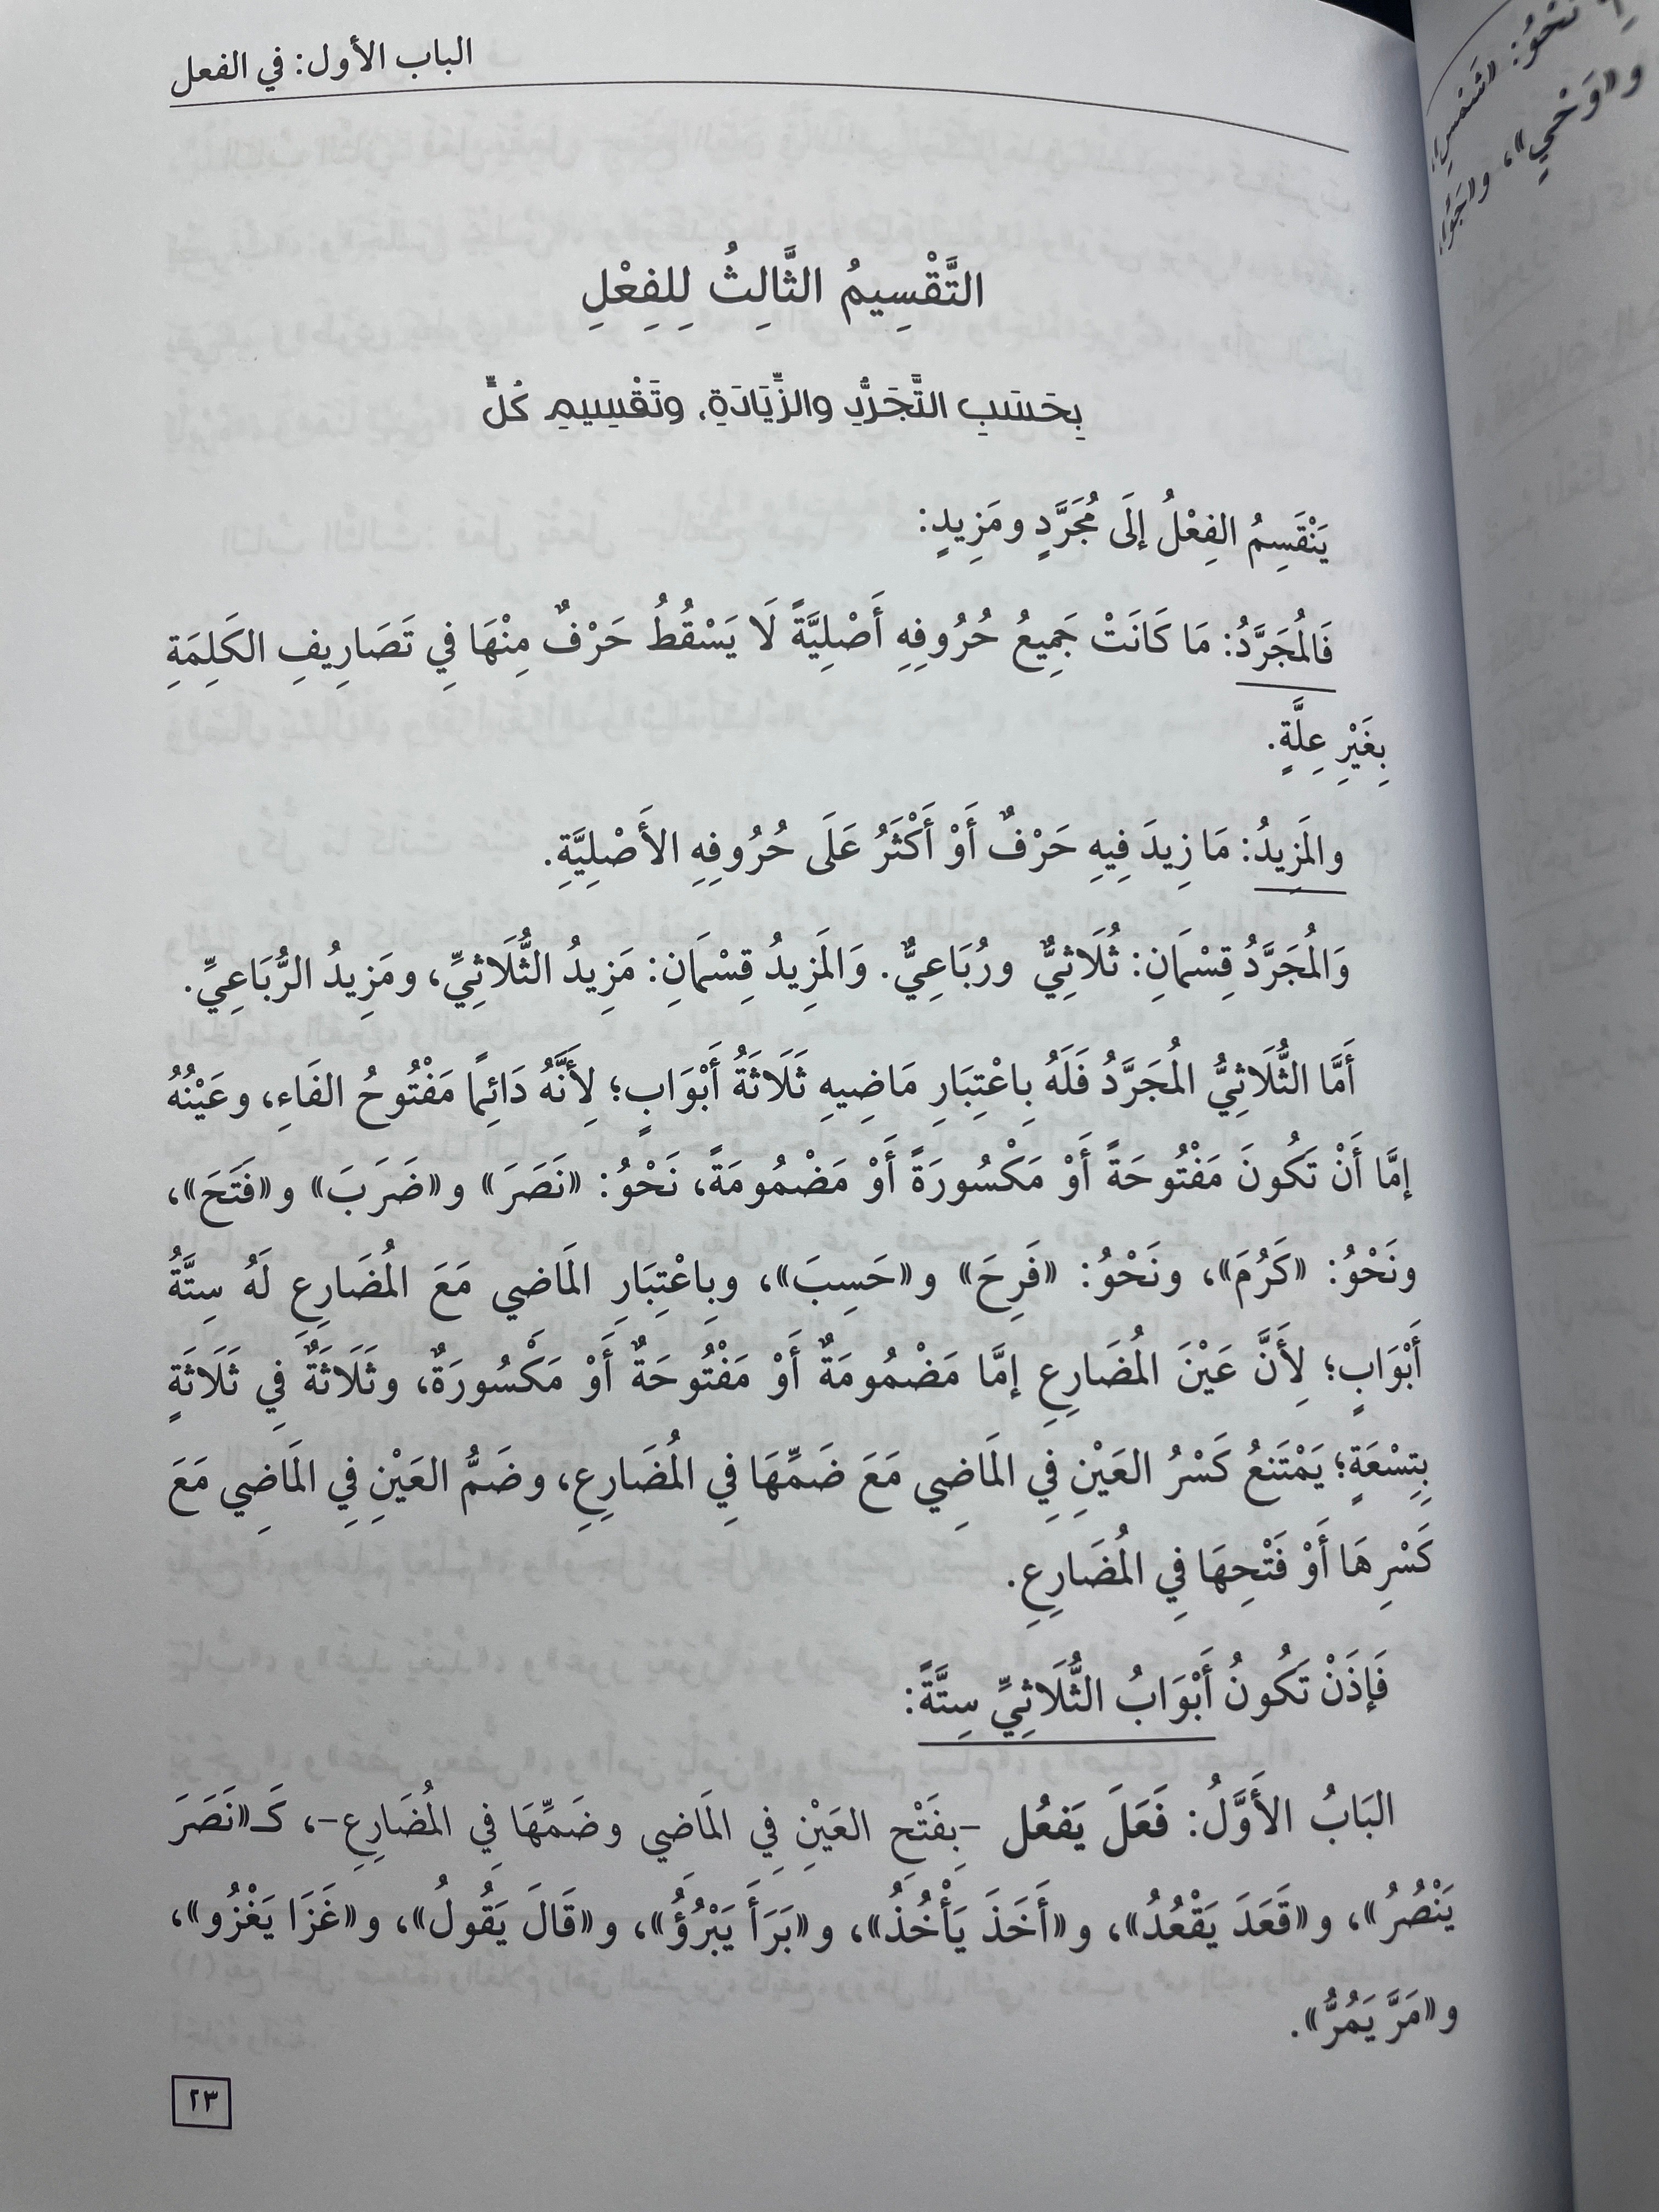 الباب الأول: في الفعل
التَّقْسِيمُ الثَّالِثُ لِلفِعْلِ
بِحَسَبِ التَّجَرُّدِ والزِّيَادَةِ، وتَقْسِيمِ كُلٍّ
يَنْقَسِمُ الفِعْلُ إلَى مُجَرَّدٍ ومَزِيدٍ:
فَالمُجَرَّدُ: مَا كَانَتْ جَمِيعُ حُرُوفِهِ أَصْلِيَّةً لَا يَسْقُطُ حَرْفٌ مِنْهَا فِي تَصَارِيفِ الكَلِمَةِ
بِغَيْرِ عِلَّةٍ.
والمَزِيدُ: مَا زِيدَ فِيهِ حَرْفٌ أَوْ أَكْثَرُ عَلَى حُرُوفِهِ الأَصْلِيَّةِ.
وَالمُجَرَّدُ قِسْمَانِ: ثُلَاثِيٌّ ورُبَاعِيٌّ. وَالمَزِيدُ قِسْمَانِ: مَزِيدُ الثُّلَاثِيِّ، ومَزِيدُ الرُّبَاعِيِّ.
أَمَّا الثُّلَاثِيُّ المُجَرَّدُ فَلَهُ بِاعْتِبَارِ مَاضِيهِ ثَلَاثَةُ أَبْوَابٍ؛ لِأَنَّهُ دَائِمًا مَفْتُوحُ الفَاءِ، وعَيْنُهُ
إمَّا أَنْ تَكُونَ مَفْتُوحَةً أَوْ مَكْسُورَةً أَوْ مَضْمُومَةً، نَحْوُ: «نَصَرَ» و«ضَرَبَ» و«فَتَحَ»،
ونَحْوُ: «كَرُمَ»، ونَحْوُ: «فَرِحَ» و«حَسِبَ»، وبِاعْتِبَارِ المَاضي مَعَ المُضَارِعِ لَهُ سِتَّةُ
أَبْوَابٍ؛ لِأَنَّ عَيْنَ المُضَارِعِ إمَّا مَضْمُومَةٌ أَوْ مَفْتُوحَةٌ أَوْ مَكْسُورَةٌ، وثَلَاثَةٌ فِي ثَلَاثَةٍ
بِتِسْعَةٍ؛ يَمْتَنعُ كَسْرُ العَيْنِ فِي المَاضِي مَعَ ضَمِّهَا فِي المُضَارِعِ، وضَمُّ العَيْنِ فِي المَاضِي مَعَ
كَسْرِهَا أَوْ فَتْحِهَا فِي المُضَارِعِ.
فَإذَنْ تَكُونُ أَبْوَابُ الثُّلَاثِيِّ سِتَّةً:
البَابُ الأَوَّلُ: فَعَلَ يَفعُل -بِفَتْحِ العَيْنِ فِي المَاضي وضَمِّهَا فِي المُضَارِعِ-، كَـ«نَصَرَ
يَنْصُرُ»، و«قَعَدَ يَقْعُدُ»، و«أَخَذَ يَأْخُذُ»، و«بَرَأَ يَبْرُؤُ»، و«قَالَ يَقُولُ»، و«غَزَا يَغْزُو»،
و«مَرَّ يَمُرُّ».
٢٣
نَحْوُ: «شَمْسٍ»،
و«وَحْيٍ»، و«جَوٍّ»